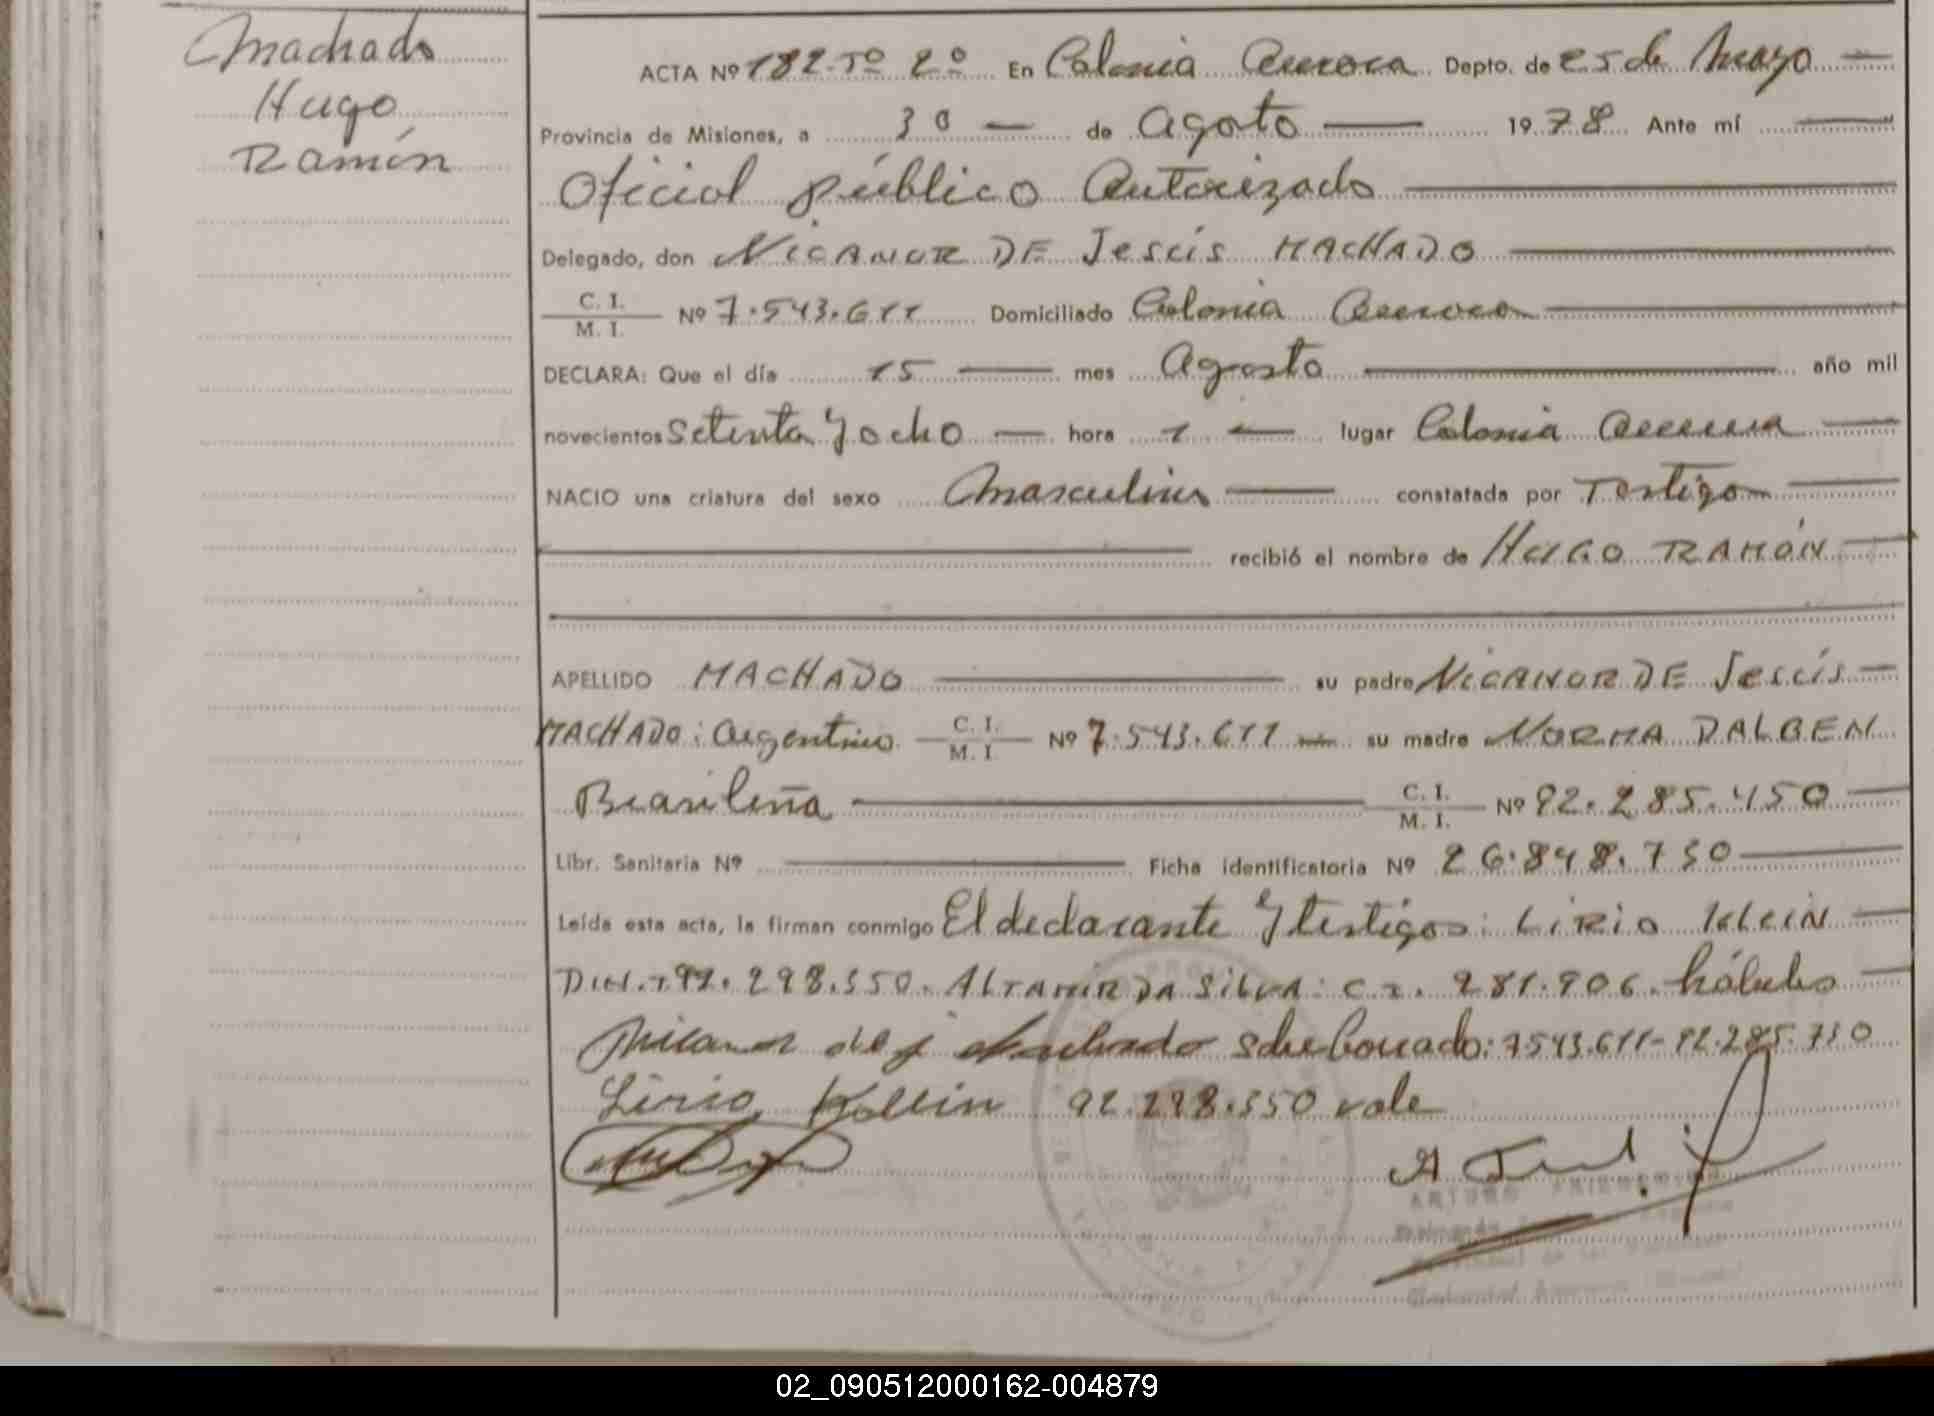 Machado
Hugo
Ramón
ACTA Nº 182. Tº 2º En Colonia Aurora Depto. de 25 de Mayo
Provincia de Misiones, a 30 de Agosto 1978 Ante mí
Oficial público Autorizado
Delegado, don NICANOR DE Jesús MACHADO
C. I.
M. I. Nº 7.543.611 Domiciliado Colonia Aurora
DECLARA: Que el día 15 mes Agosto año mil
novecientos Setenta y ocho hora 1 lugar Colonia Aurora
NACIO una criatura del sexo Masculino constatada por Testigos
recibió el nombre de HUGO RAMÓN
APELLIDO MACHADO su padre NICANOR DE Jesús
MACHADO: Argentino C. I. M. I. Nº 7.543.611 su madre NORMA DALBEN
Brasileña C. I. M. I. Nº 92.285.450
Libr. Sanitaria Nº Ficha identificatoria Nº 26.848.730
Leída esta acta, la firman conmigo El declarante y testigos: LIRIO KLEIN
92.298.550. ALTAMIR DA SILVA: C.I. 281.906. hábiles
de j Machado Sobreborrado: 7543.611-92.285.750
Lirio Kllein 92.298.550 vale
ARTURO
02_090512000162-004879